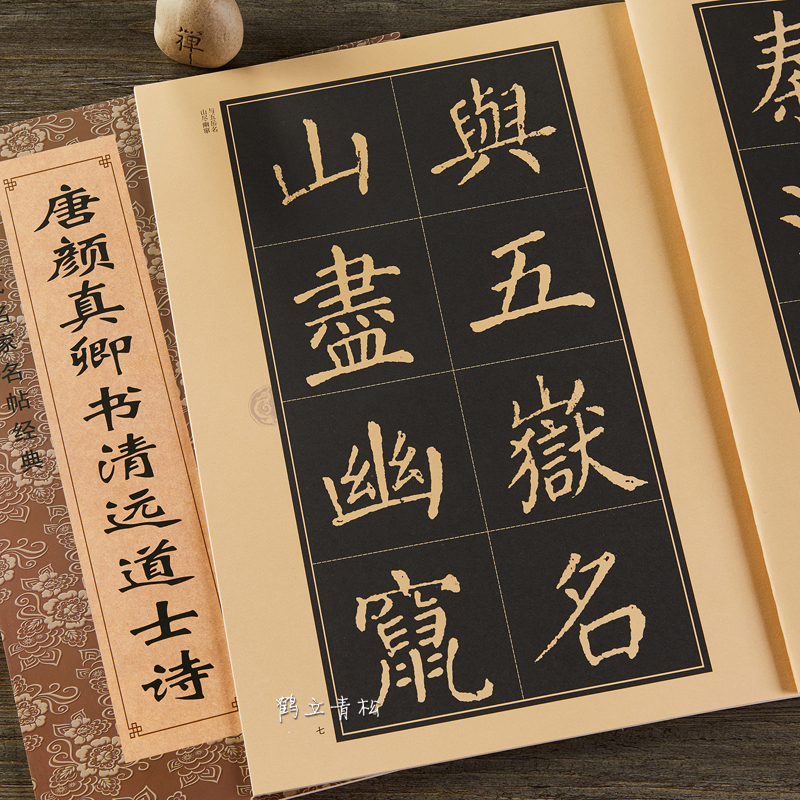 禪
唐颜真卿书清远道士诗
家名帖经典
与五岳名
山尽幽窜
與五嶽名
山盡幽竄
七
鹤立青松